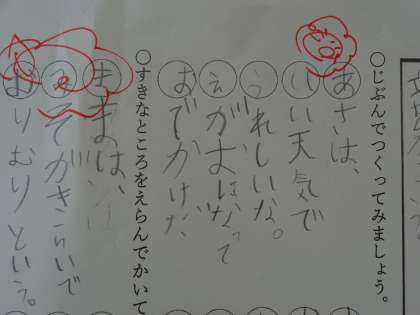 ○じぶんでつくってみましょう。
あさは、
いい天気で
うれしいな。
えがおになって
おでかけだ
○すきなところをえらんでかいて
ままは、
みそがきらいで
むりむりという。